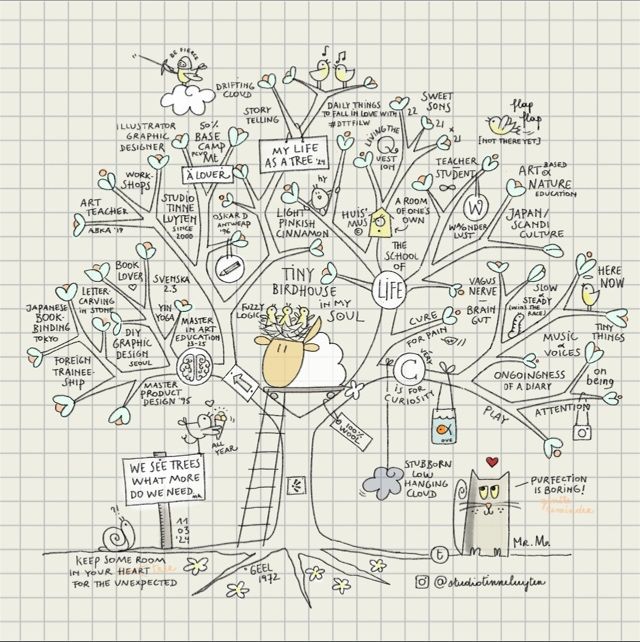 BE FIERCE
DRIFTING
CLOUD
STORY
TELLING
DAILY THINGS
TO FALL IN LOVE WITH
#DTTFILW
22
SWEET
SONS
21
21
flap
flap
[NOT THERE YET]
ILLUSTRATOR
GRAPHIC
DESIGNER
50%
BASE
CAMP
À LOVER
MY LIFE
AS A TREE '24
LIVING THE
Q
UEST
ION
TEACHER
STUDENT
ART BASED
NATURE
EDUCATION
WORK-
SHOPS
ART
TEACHER
ABKA '17
STUDIO
TINNE
LUYTEN
SINCE
2000
OSKAR D
ANTWERP
'96
LIGHT
PINKISH
CINNAMON
HUIS
MUS
©
A ROOM
OF ONE'S
OWN
W
WANDER
LUST
JAPAN/
SCANDI
CULTURE
THE
SCHOOL
OF
LIFE
TINY
BIRDHOUSE
IN MY
SOUL
FUZZY
LOGIC
BOOK
LOVER
SVENSKA
2.3
LETTER
CARVING
in STONE
YIN
YOGA
JAPANESE
BOOK-
BINDING
TOKYO
DIY
GRAPHIC
DESIGN
SEOUL
MASTER
IN ART
EDUCATION
13-15
FOREIGN
TRAINEE-
SHIP
MASTER
PRODUCT
DESIGN '95
VAGUS
NERVE
—
BRAIN
GUT
SLOW
STEADY
(WINS THE
RACE)
HERE
NOW
TINY
THINGS
CURE
FOR PAIN
MUSIC
VOICES
VERY
C
IS FOR
CURIOSITY
ONGOINGNESS
OF A DIARY
on
being
PLAY
ATTENTION
ALL
YEAR
100%
WOOL
WE SEE TREES
WHAT MORE
DO WE NEED
?!
11
03
'24
STUBBORN
LOW
HANGING
CLOUD
PURFECTION
IS BORING!
MR. MR
t
KEEP SOME ROOM
IN YOUR HEART
FOR THE UNEXPECTED
°GEEL
1972
@studiotinneluyten